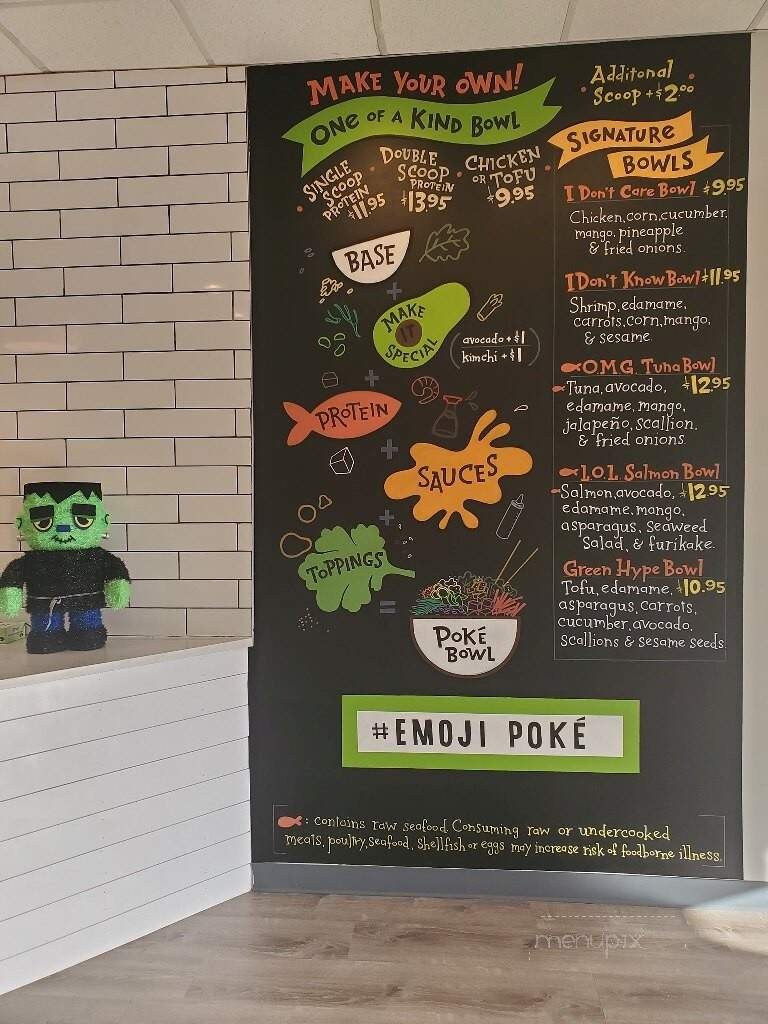 MAKE YOUR OWN!
ONE OF A KIND BOWL
SINGLE
SCOOP
PROTEIN
$11.95
DOUBLE
SCOOP
PROTEIN
$13.95
CHICKEN
OR TOFU
$9.95
BASE
+
MAKE
IT
SPECIAL
avocado + $1
kimchi + $1
+
PROTEIN
+
SAUCES
+
TOPPINGS
=
POKÉ
BOWL
Additonal
Scoop +$2.00
SIGNATURE
BOWLS
I Don't Care Bowl $9.95
Chicken, corn, cucumber,
mango, pineapple
& fried onions.
I Don't Know Bowl $11.95
Shrimp, edamame,
carrots, corn, mango,
& sesame
O.M.G. Tuna Bowl
Tuna, avocado, $12.95
edamame, mango,
jalapeño, scallion,
& fried onions.
L.O.L Salmon Bowl
Salmon, avocado, $12.95
edamame, mango,
asparagus, seaweed
Salad, & furikake.
Green Hype Bowl
Tofu, edamame, $10.95
asparagus, carrots,
cucumber, avocado,
scallions & sesame seeds.
#EMOJI POKÉ
: contains raw seafood. Consuming raw or undercooked
meats, poultry, seafood, shellfish or eggs may increase risk of foodborne illness.
menupix